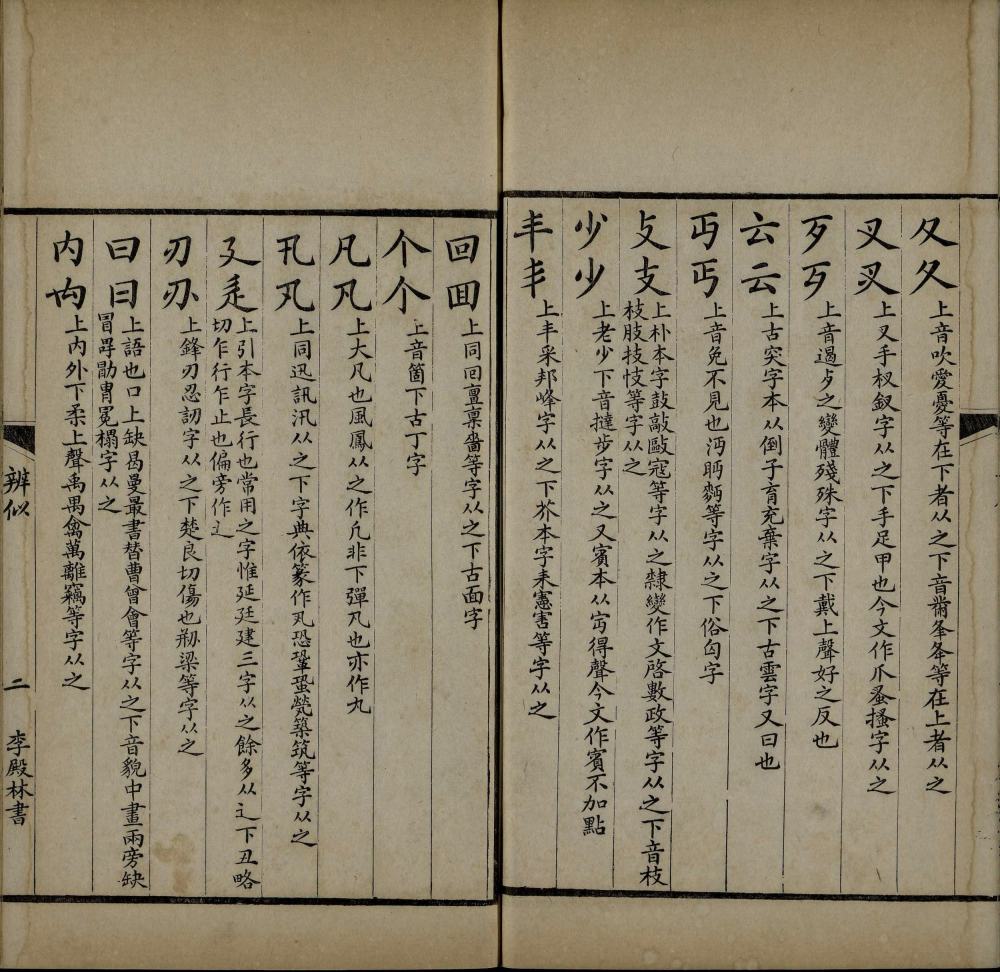 夊夂上音吹愛憂等在下者从之下音黹夆夅等在上者从之
叉㕚上叉手杈釵字从之下手足甲也今文作爪蚤搔字从之
歹歹上音遏歺之變體殘殊字从之下戴上聲好之反也
𠫓云上古突字本从倒子育充棄字从之下古雲字又曰也
丏丐上音免不見也沔眄麪等字从之下俗匄字
攴支上朴本字鼓敲毆寇等字从之隸變作攵啓數政等字从之下音枝
枝肢技忮等字从之
少少上老少下音撻步字从之又賓本从宀得聲今文作賓不加點
丰丯上丰采邦峰字从之下芥本字耒憲害等字从之
回囬上同囘亶稟嗇等字从之下古面字
个个上音箇下古丁字
凡凡上大凡也風鳳从之作几非下彈凡也亦作丸
卂丮上同迅訊汛从之下字典依篆作丮恐鞏蛩甇築筑等字从之
廴辵上引本字長行也常用之字惟延廷建三字从之餘多从辶下丑略
切乍行乍止也偏旁作辶
刃刅上鋒刃忍訒字从之下楚良切傷也剏梁等字从之
曰冃上語也口上缺曷曼最書替曹曾會等字从之下音貌中畫兩旁缺
冒冔勖冑冕榻字从之
内禸上内外下柔上聲禹禺禽萬離竊等字从之
辨似
二
李殿林書